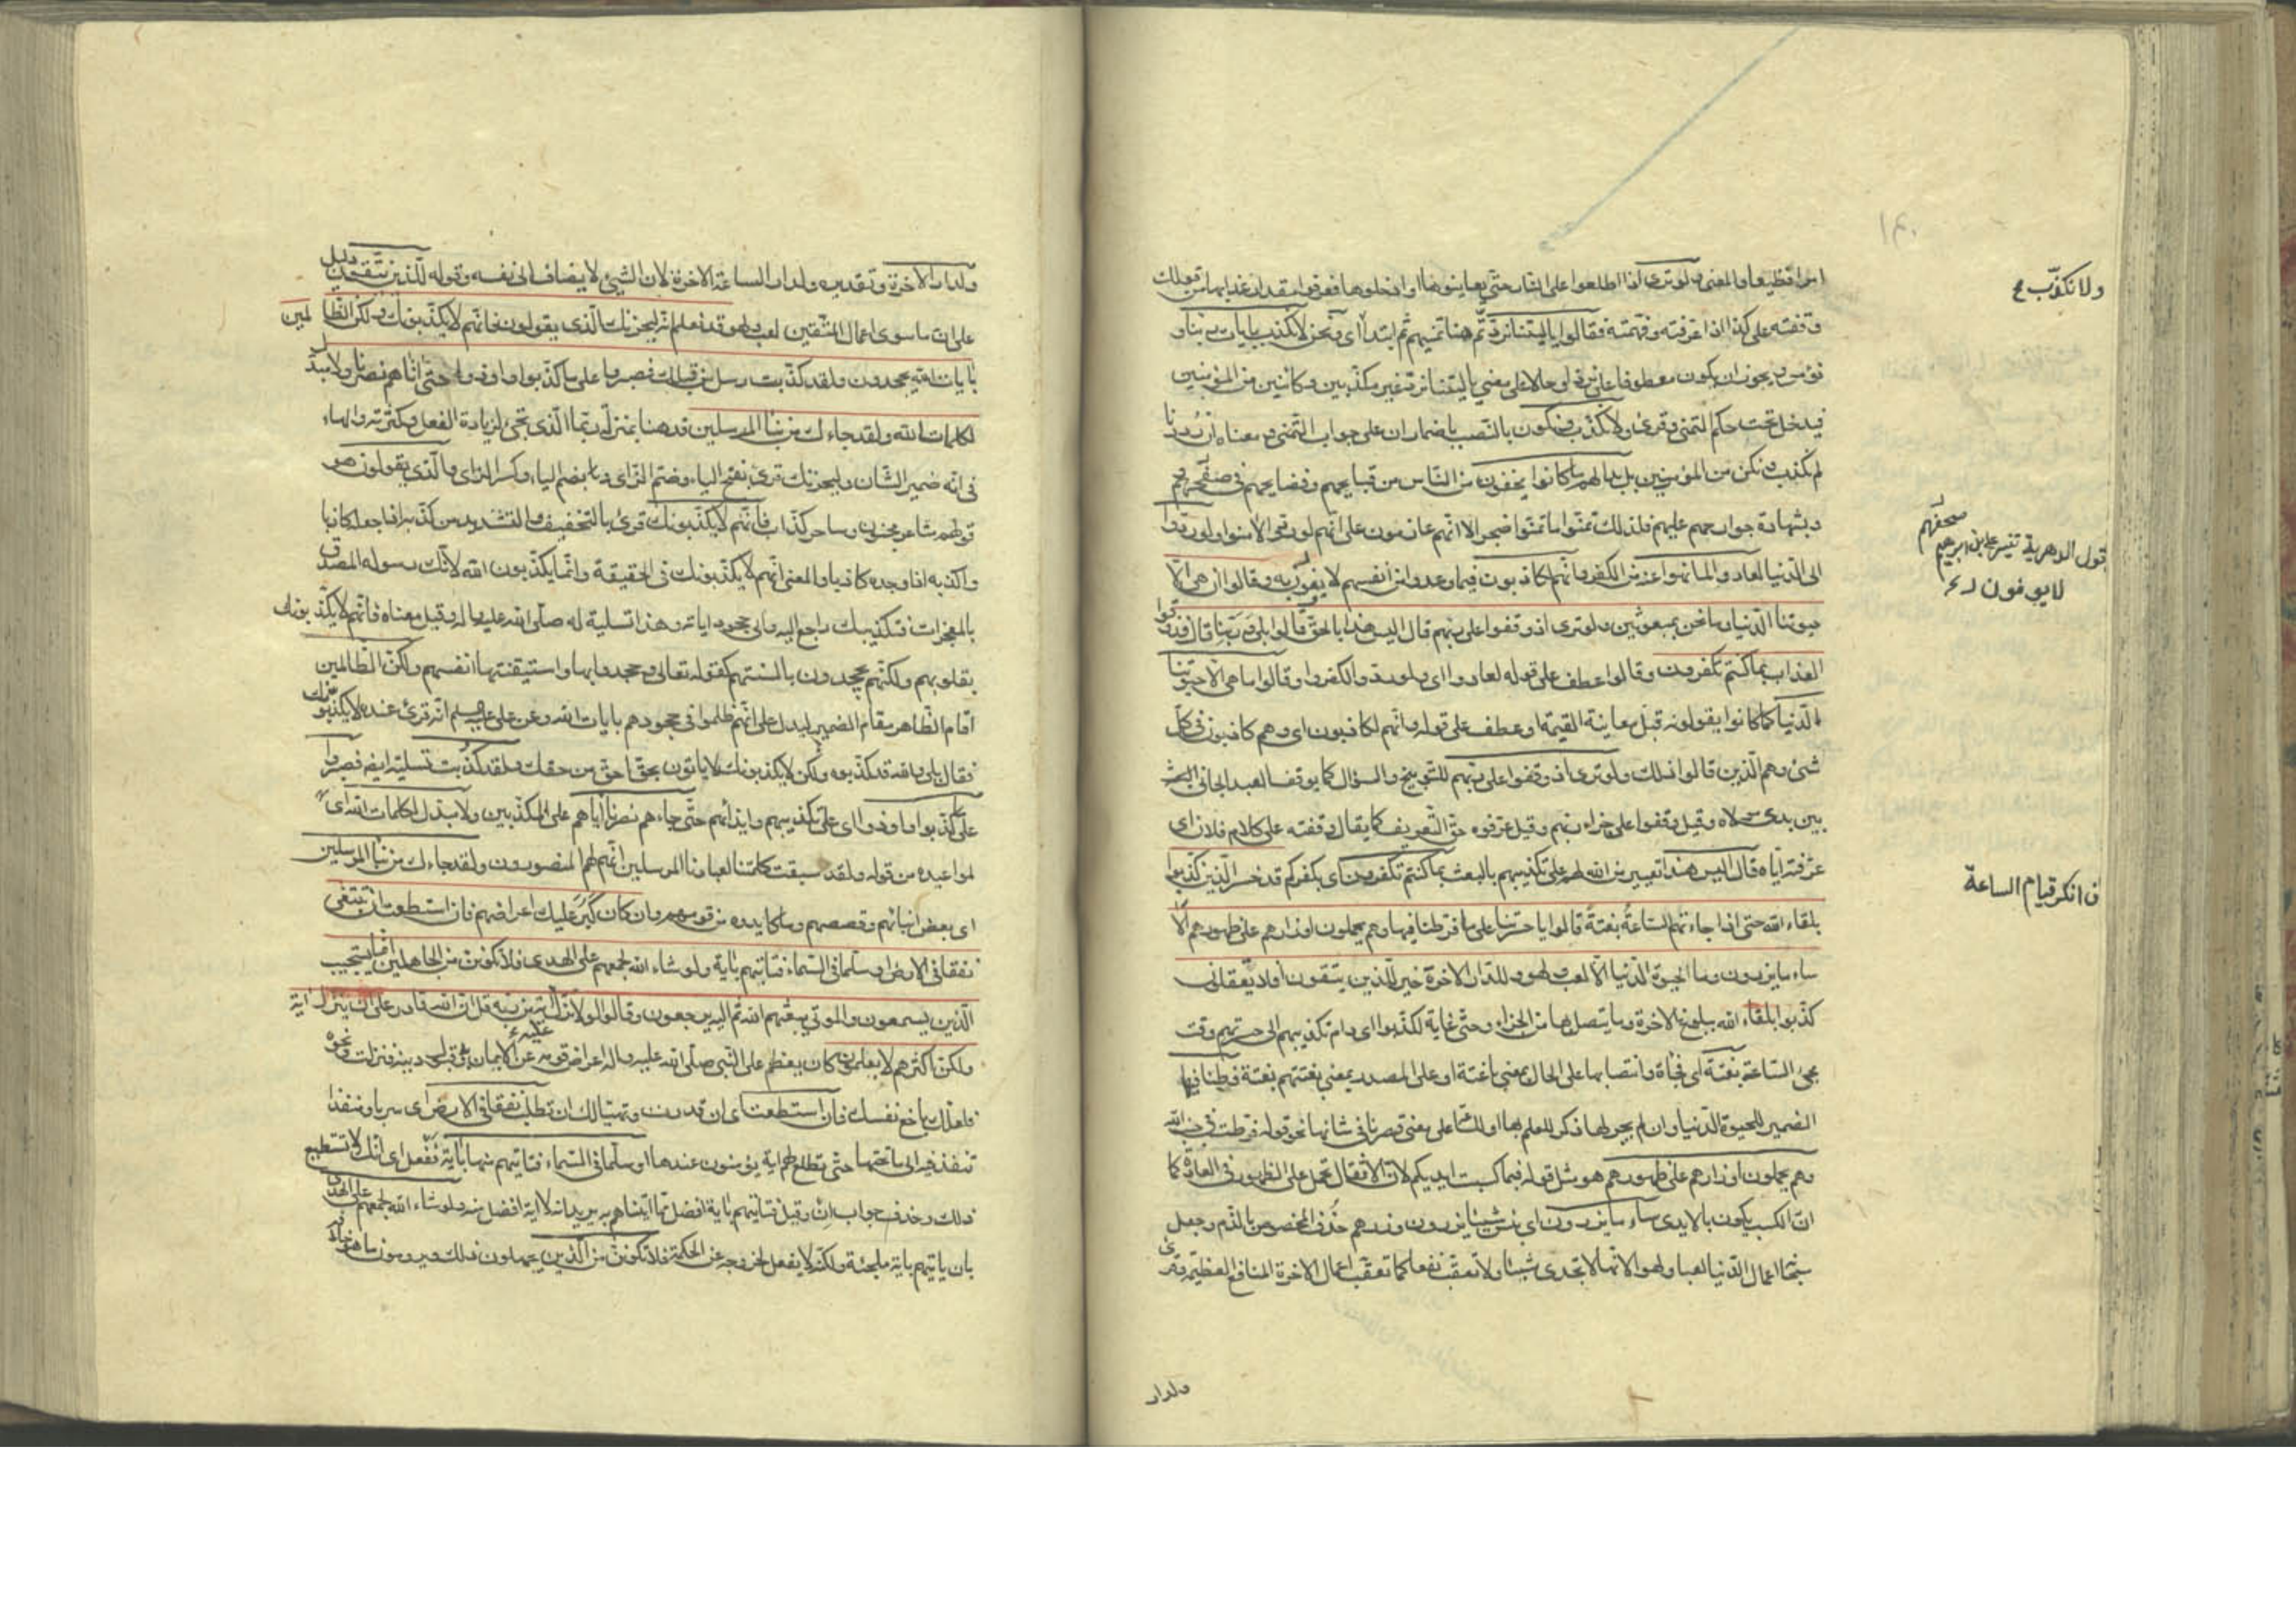 امرا فظيعا والمعنى ولو ترى اذا اطلعوا على النار حتى يعاينوها او ادخلوها فعرفوا مقدار عذابها من قولك
وقفته على كذا اذا عرفته وفهمته فقالوا يا ليتنا نرد تم هنا تمنيهم ثم ابتدأ اى ونحن لا نكذب بايات ربنا و
نؤمن ويجوز ان يكون معطوفا على نرد او حالا على معنى يا ليتنا نرد غير مكذبين وكائنين من المؤمنين
فيدخل تحت حكم التمنى وقرئ ولا نكذب ونكون بالنصب باضمار ان على جواب التمنى ومعناه ان رددنا
لم نكذب ونكن من المؤمنين بل بدا لهم ما كانوا يخفون من الناس من قبايحهم وفضايحهم فى
وبشهادة جوارحهم عليهم فلذلك تمنوا ما تمنوا ضجرا لا انهم عازمون على انهم لو ردوا لامنوا ولو ردوا
الى الدنيا لعادوا لما نهوا عنه من الكفر وانهم لكاذبون فيما وعدوا من انفسهم لا يفون به وقالوا ان هى الا
حيوتنا الدنيا وما نحن بمبعوثين ولو ترى اذ وقفوا على ربهم قال اليس هذا بالحق قالوا بلى وربنا قال فذوقوا
العذاب بما كنتم تكفرون وقالوا عطف على قوله لعادوا اى ولو ردوا لكفروا وقالوا ما هى الا حيوتنا
الدنيا كما كانوا يقولونه قبل معاينة القيمة او عطف على قوله وانهم لكاذبون اى وهم كاذبون فى كل
شئ وهم الذين قالوا ذلك ولو ترى اذ وقفوا على ربهم للتوبيخ والسؤال كما يوقف العبد الجانى
بين يدى مولاه وقيل وقفوا على جزاء ربهم وقيل عرفوه حق التعريف كما يقال وقفته على كلام فلان اى
عرفته اياه قال اليس هذا تعيير من الله لهم على تكذيبهم بالبعث بما كنتم تكفرون اى بكفركم قد خسر الذين كذبوا
بلقاء الله حتى اذا جاءتهم الساعة بغتة قالوا يا حسرتنا على ما فرطنا فيها وهم يحملون اوزارهم على ظهورهم الا
ساء ما يزرون وما الحيوة الدنيا الا لعب ولهو وللدار الاخرة خير للذين يتقون افلا تعقلون
كذبوا بلقاء الله ببلوغ الاخرة وما يتصل بها من الجزاء وحتى غاية لكذبوا اى دام تكذيبهم الى حسرتهم وقت
مجئ الساعة بغتة اى فجأة وانتصابها على الحال بمعنى باغتة او على المصدر بمعنى بغتتهم بغتة فرطنا فيها
الضمير للحيوة الدنيا وان لم يجر لها ذكر للعلم بها او للساعة على معنى قصرنا فى شانها نحو قوله فرطت فى جنب الله
وهم يحملون اوزارهم على ظهورهم هو مثل قوله فبما كسبت ايديكم لان الاثقال تحمل على الظهور فى العادة كما
ان الكسب يكون بالايدى ساء ما يزرون اى بئس شيئا يزرون وزرهم حذف المخصوص بالذم وجعل
اعمال الدنيا لعبا ولهوا لانها لا تجدى شيئا ولا تعقب نفعا كما تعقب اعمال الاخرة المنافع العظيمة وقرئ
ولدار
ولا نكذب
قول الدهرية تفسير على بن ابرهيم
لا يوفون
انكر قيام الساعة
ولدار الاخرة وتقديره ولدار الساعة الاخرة لان الشئ لا يضاف الى نفسه وقوله للذين يتقون دليل
على ان ما سوى اعمال المتقين لعب ولهو قد نعلم انه ليحزنك الذى يقولون فانهم لا يكذبونك ولكن الظالمين
بايات الله يجحدون ولقد كذبت رسل من قبلك فصبروا على ما كذبوا واوذوا حتى اتاهم نصرنا ولا مبدل
لكلمات الله ولقد جاءك من نبأ المرسلين قد هنا بمنزلة ربما الذى تجئ لزيادة الفعل وكثرته والهاء
فى انه ضمير الشان وليحزنك قرئ بفتح الياء وضم الزاى و بضم الياء وكسر الزاى والذى يقولون هو
قولهم شاعر مجنون وساحر كذاب فانهم لا يكذبونك قرئ بالتخفيف والتشديد من كذبه اذا جعله كاذبا
واكذبه اذا وجده كاذبا والمعنى انهم لا يكذبونك فى الحقيقة وانما يكذبون الله لانك رسوله المصدق
بالمعجزات فتكذيبك راجع اليه والى جحود اياته وهذا تسلية له صلى الله عليه واله وقيل معناه فانهم لا يكذبونك
بقلوبهم ولكنهم يجحدون بالسنتهم كقوله تعالى وجحدوا بها واستيقنتها انفسهم ولكن الظالمين
اقام الظاهر مقام المضمر ليدل على انهم ظلموا فى جحودهم بايات الله وعن على انه قرئ عنده لا يكذبونك
فقال بلى والله قد كذبوه ولكن لا يكذبونك لا ياتون بحق احق من حقك ولقد كذبت تسلية ايضا فصبروا
على ما كذبوا واوذوا اى على تكذيبهم وايذائهم حتى جاءهم نصرنا اياهم على المكذبين ولا مبدل لكلمات الله اى
لمواعيده من قوله ولقد سبقت كلمتنا لعبادنا المرسلين انهم لهم المنصورون ولقد جاءك من نبأ المرسلين
اى بعض انبائهم وقصصهم وما كابدوه من قومهم وان كان كبر عليك اعراضهم فان استطعت ان تبتغى
نفقا فى الارض او سلما فى السماء فتاتيهم باية ولو شاء الله لجمعهم على الهدى فلا تكونن من الجاهلين انما يستجيب
الذين يسمعون والموتى يبعثهم الله ثم اليه يرجعون وقالوا لولا نزل عليه اية من ربه قل ان الله قادر على ان ينزل اية
ولكن اكثرهم لا يعلمون كان يعظم على النبى صلى الله عليه واله اعراض قومه عن الايمان فنزلت ونحوه
فلعلك باخع نفسك فان استطعت اى ان قدرت وتهيأ لك ان تطلب نفقا فى الارض اى سربا ومنفذا
تنفذ فيه الى ما تحتها حتى تطلع لهم اية يؤمنون عندها او سلما فى السماء فتاتيهم منها باية فتفعل اى انك لا تستطيع
ذلك وحذف جواب ان وقيل فتاتيهم باية افضل مما اتيناهم به يريد انه لا اية افضل منه ولو شاء الله لجمعهم على الهدى
بان ياتيهم باية ملجئة ولكنه لا يفعل لخروجه عن الحكمة فلا تكونن من الذين يجهلون ذلك ويرومون ما هو خلافه